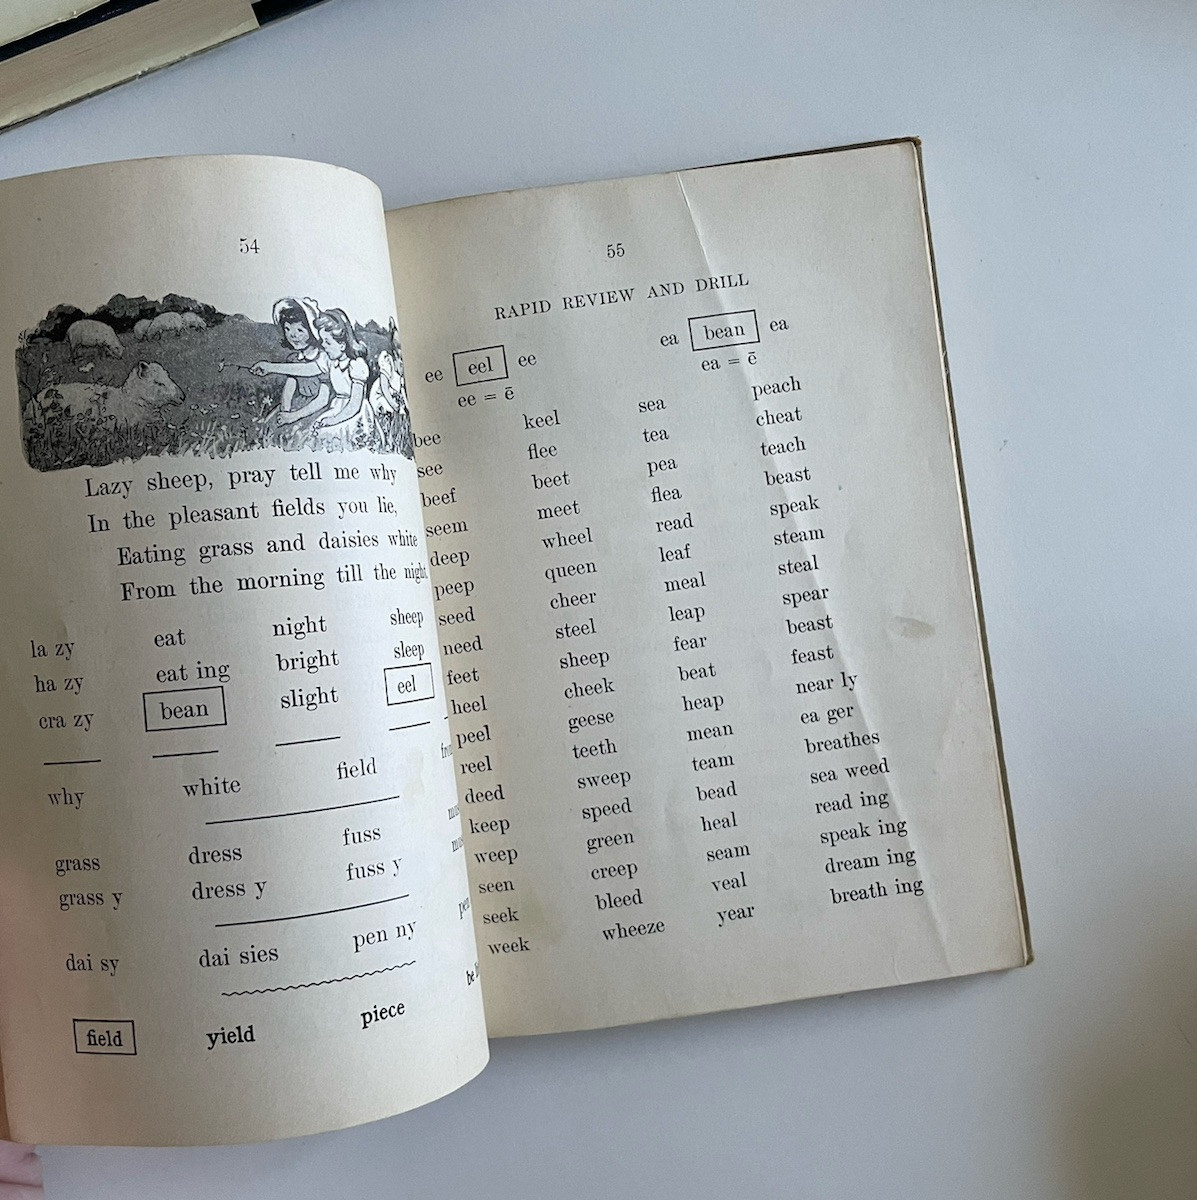 54
Lazy sheep, pray tell me why
In the pleasant fields you lie,
Eating grass and daisies white
From the morning till the night
la zy eat night sheep
ha zy eat ing bright sleep
cra zy bean slight eel
why white field
grass dress fuss
grass y dress y fuss y
dai sy dai sies pen ny
field yield piece
55
RAPID REVIEW AND DRILL
ee eel ee ea bean ea
ee = ē ea = ē
bee keel sea peach
see flee tea cheat
beef beet pea teach
seem meet flea beast
deep wheel read speak
peep queen leaf steam
seed cheer meal steal
need steel leap spear
feet sheep fear beast
heel cheek beat feast
peel geese heap near ly
reel teeth mean ea ger
deed sweep team breathes
keep speed bead sea weed
weep green heal read ing
seen creep seam speak ing
seek bleed veal dream ing
week wheeze year breath ing